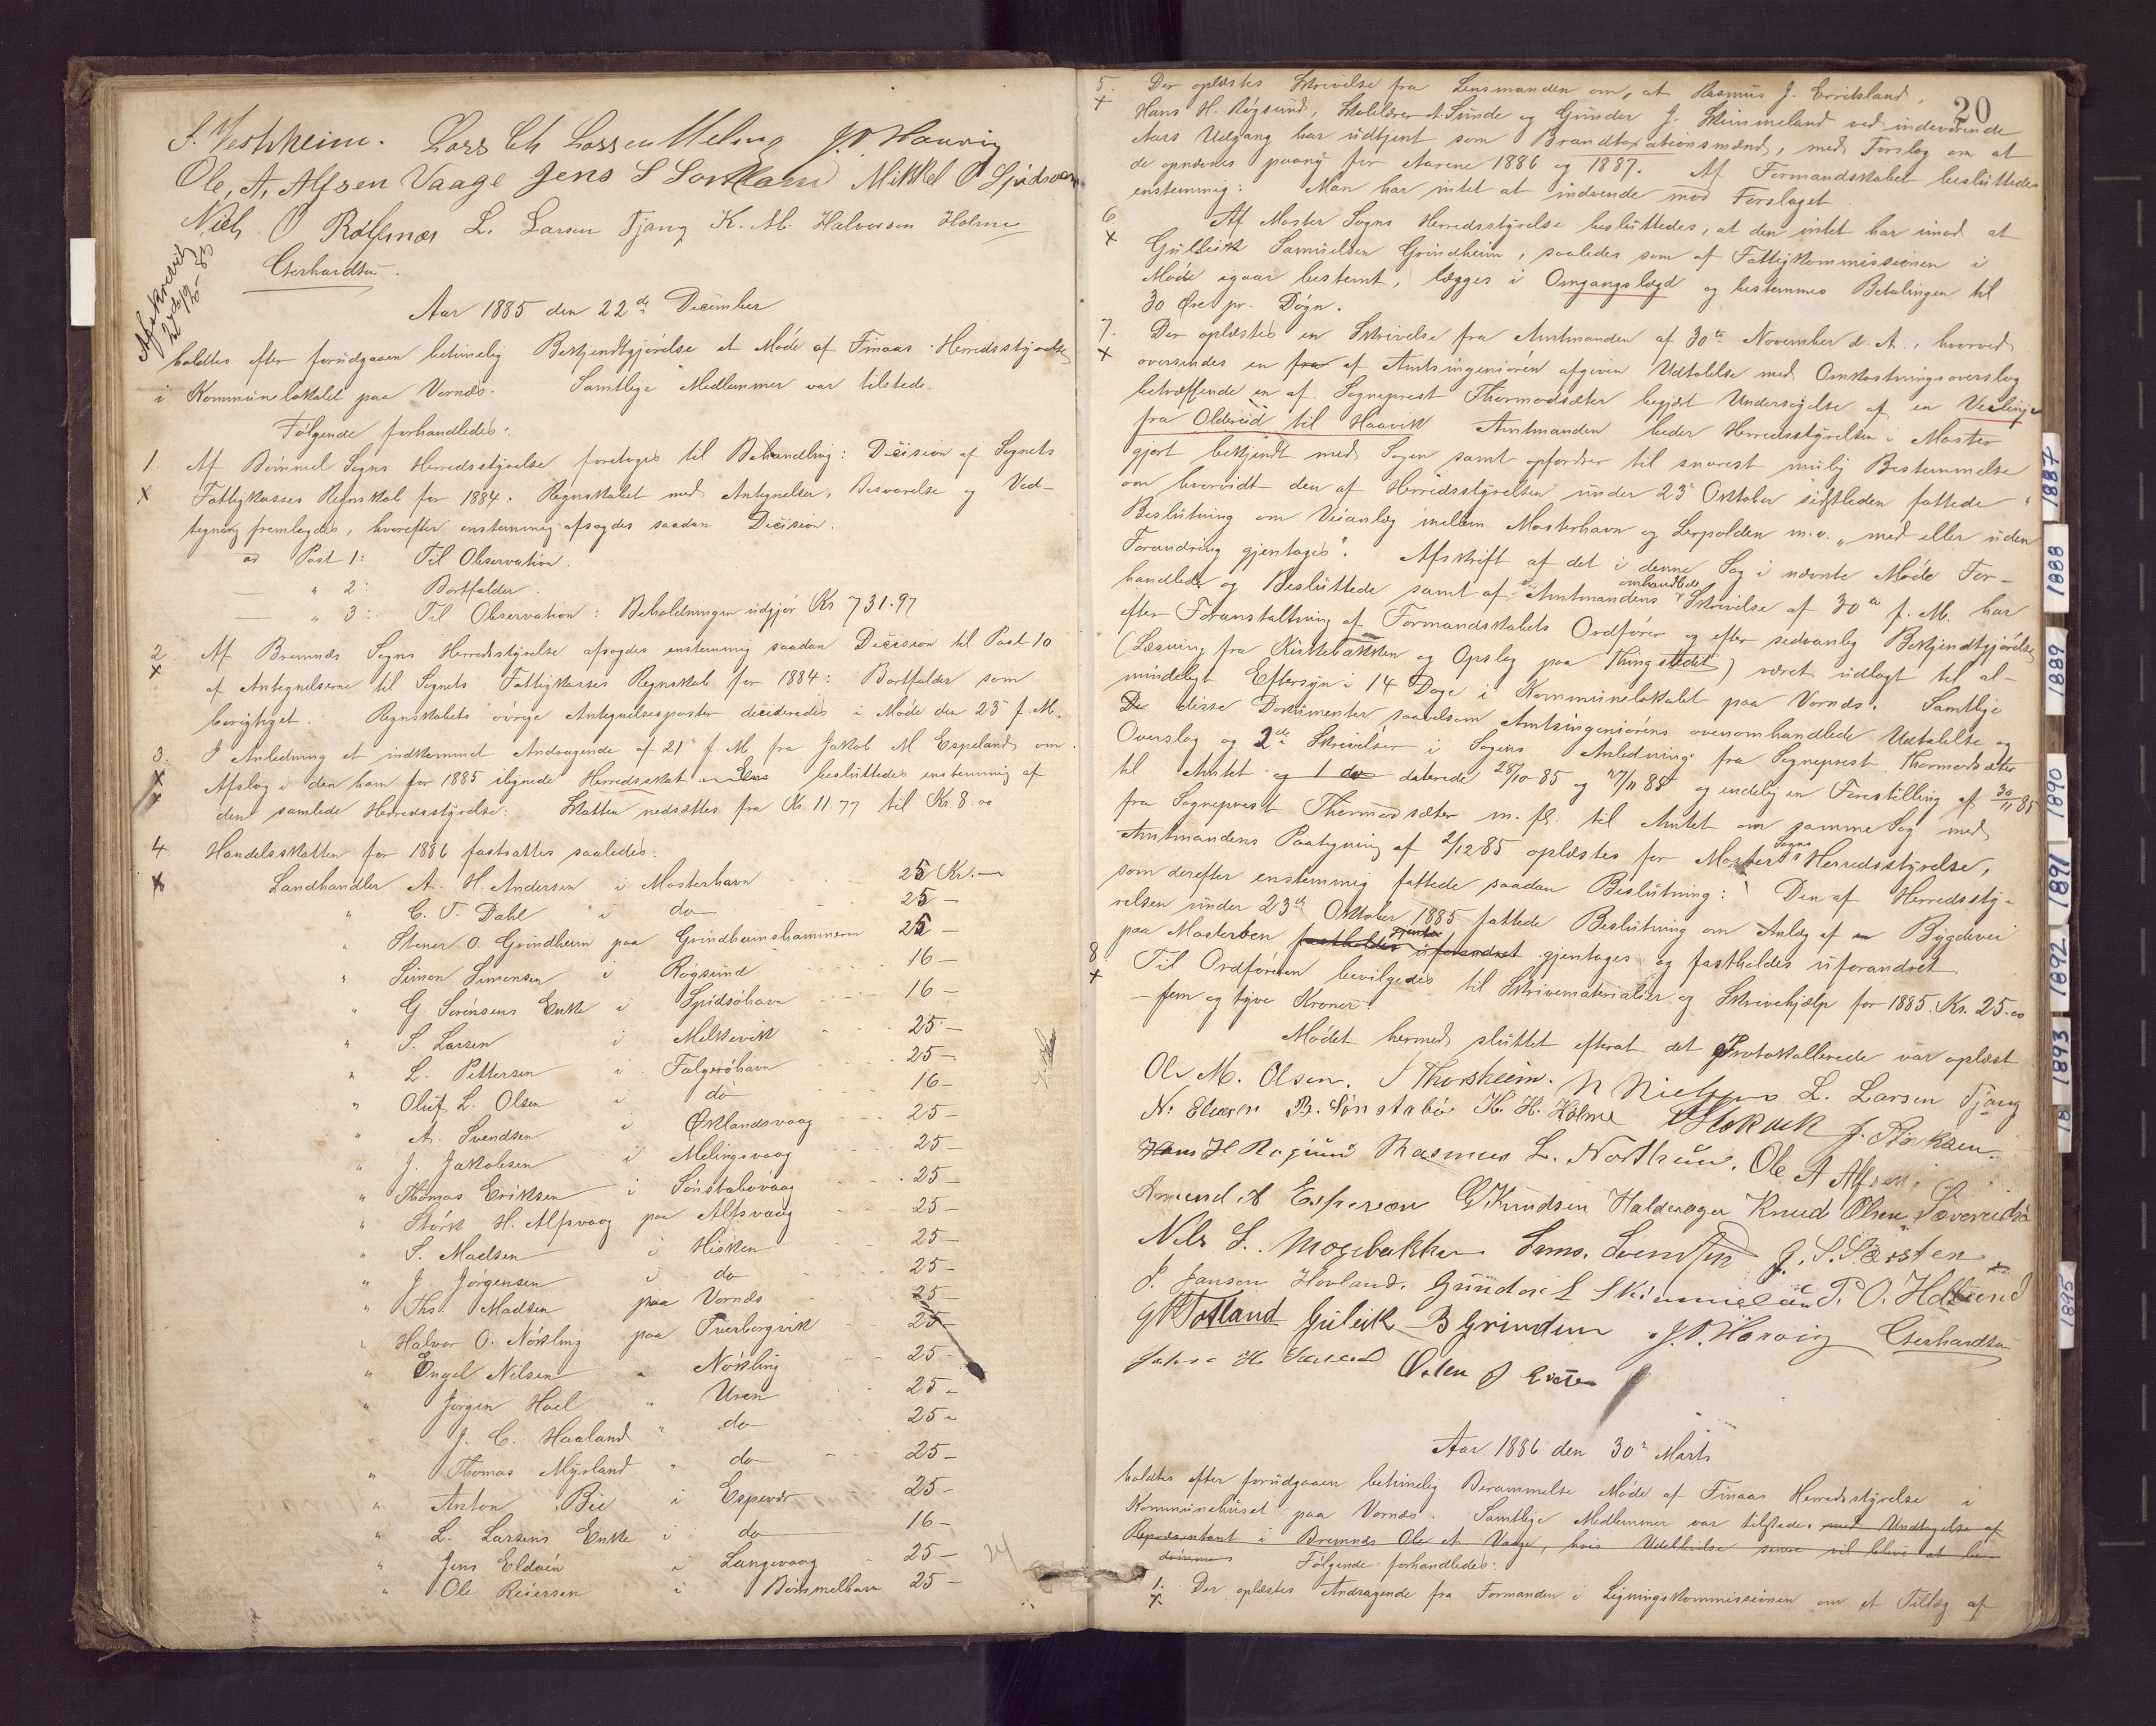 S. Vestvheim. Lars Ch Larsen Meling J. P. Haavig
Ole, A, Alfsen Vaage Jens S Sortland Mikkel O Spidsøen
Niels O Rolfsnæs L. Larsen Tjong K. M. Halvorsen Holme
Gerhardsen.
Afskrevet
Aar 1885 den 22de December
holdtes efter forudgaaen betimelig Bekjendtgjørelse et Møde af Finaas Herredsstyrelse
i Kommunelokalet paa Vornæs. Samtlige Medlemmer var tilstede.
Følgende forhandledes:
1. Af Bømmel Sogns Herredsstyrelse foretoges til Behandling: Decision af Sognets
x Fattigkasses Regnskab for 1884. Regnskabet med Antegnelser, Besvarelse og Ved-
tegning fremlagdes, hvorefter enstemmig afsagdes saadan Decision.
ad Post 1: Til Observation.
— " 2: Bortfalder.
— " 3: Til Observation: Beholdningen udgjør Kr 731.97
2. Af Bremnæs Sogns Herredsstyrelse afsagdes enstemmig saadan Decision til Post 10
x af Antegnelserne til Sognets Fattigkasses Regnskab for 1884: Bortfalder som
berigtiget. Regnskabets øvrige Antegnelsesposter decideredes i Møde den 23de f. M.
3. I Anledning et indkommet Andragende af 21de f. M. fra Jakob M Espeland om
x Afslag i den ham for 1885 ilignede Herredsskat besluttedes enstemmig af
x den samlede Herredsstyrelse: Skatten nedsættes fra Kr. 11.77 til Kr. 8.00
4. Handelsskatten for 1886 fastsattes saaledes:
x Landhandler A. H. Andersen i Mosterhavn 25 Kr. —
" C. T. Dahl i do 25 —
" Stener O. Grindheim paa Grindheimshammeren 25 —
" Simon Simonsen i Røgsund 16 —
" G. Sørensens Enke i Spidsøhavn 16 —
" S. Larsen i Melkevik 25 —
" L. Pettersen i Folgerøhavn 25 —
" Oluf L. Olsen i do 16 —
" A. Svendsen i Øklandsvaag 25 —
" J. Jakobsen i Melingsvaag 25 —
" Thomas Eriksen i Sønstabøvaag 25 —
" Størk H. Alfsvaag paa Alfsvaag 25 —
" S. Madsen i Hisken 25 —
" J. Jørgensen i do 25 —
" Ths. Madsen paa Vornæs 25 —
" Halvor O. Nökling paa Tverborgvik 25 —
" Engel Nilsen " Nökling 25 —
" Jørgen Hoel " Uren 25 —
" J. C. Haaland " do 25 —
" Thomas Mysland " do 25 —
" Anton Bie i Espevær 25 —
" L. Larsens Enke i do 16 —
" Jens Eldøen " Langevaag 25 —
" Ole Reiersen i Bømmelhavn 25 —
20
5. Der oplæstes Skrivelse fra Lensmanden om, at Rasmus J. Erritsland,
x Hans H. Røgsund, Skolelærer A. Sunde og Gunder J. Skimmeland ved indeværende
Aars Udgang har udtjent som Brandtaxationsmænd, med Forslag om at
de opnævnes paany for Aarene 1886 og 1887. Af Formandskabet besluttedes
enstemmig: Man har intet at indvende mod Forslaget.
6. Af Moster Sogns Herredsstyrelse besluttedes, at den intet har imod at
x Gulleik Samuelsen Grindheim, saaledes som af Fattigkommissionen i
Møde igaar bestemt, lægges i Omgangslægd og bestemmes Betalingen til
30 Øre pr. Døgn.
7. Der oplæstes en Skrivelse fra Amtmanden af 30te November d. A., hvorved
x oversendes en fra af Amtsingeniøren afgiven Udtalelse med Omkostningsoverslag
betræffende en af Sogneprest Thormodsæter begjært Undersøgelse af en Veilinje
fra Oldereid til Haavik Amtmanden beder Herredsstyrelsen i Moster
gjort bekjendt med Sagen samt opfordrer til snarest mulig Bestemmelse
om hvorvidt den af Herredsstyrelsen under 23de Oktober sidstleden fattede
Beslutning om Veianlæg mellem Mosterhavn og Lerpolden m.v. "med eller uden
Forandring gjentages". Afskrift af det i denne Sag i nævnte Møde For-
handlede og Besluttede samt af Amtmandens omhandlede Skrivelse af 30te f. M. har
efter Foranstaltning af Formandskabets Ordfører og efter sedvanlig Bekjendtgjørelse
(Læsning fra Kirkebakken og Opslag paa Thingstedet) været udlagt til al-
mindeligt Eftersyn i 14 Dage i Kommunelokalet paa Vornæs. Samtlige
De disse Dokumenter saavelsom Amtsingeniørens ovenomhandlede Udtalelse og
Overslag og 2de Skrivelser i Sagens Anledning fra Sogneprest Thormodsæter
til Amtet og 1 do daterede 28/10-85 og 27/11 85 og endelig en Forestilling af 30/11 85
fra Sogneprest Thormodsæter m. fl. til Amtet om samme Sag med
Amtmandens Paategning af 2/12 85 oplæstes for Mosters Sogns Herredsstyrelse,
som derefter enstemmig fattede saadan Beslutning: Den af Herredssty-
relsen under 23de Oktober 1885 fattede Beslutning om Anlæg af en Bygdevei
paa Mosterøen fastholdes uforandret gjentages og fastholdes uforandret
8. Til Ordføreren bevilgedes til Skrivematerialier og Skrivehjælp for 1885. Kr. 25.00
x — fem og tyve Kroner.
Mødet hermed sluttet efterat det Protokollerede var oplæst
Ole M. Olsen. S Thorsheim. N Nielsen L. Larsen Tjong
N. B. Sønstabø K. H. Holme
Hans H Røgsund Rasmus L. Nordhuus. Ole A Alfsen
Amund A Espevær G. Knudsen Halderager Knud Olsen Sævereidsø
Nils S. Mogebakken Svendsen
J. Janson Hovland. Gunder J Skimmeland P. O. Hollund
Totland Guleik B Grindem J. P. Havig Gerhardsen
Aar 1886 den 30te Marts
holdtes efter forudgaaen betimelig Berammelse Møde af Finaas Herredsstyrelse i
Kommunehuset paa Vornæs. Samtlige Medlemmer var tilstede. med Undtagelse af
Repræsentant i Bremnæs Ole A. Vaage, hvis Udeblivelse senere vil blive at be-
dømme Følgende forhandledes:
1. Der oplæstes Andragende fra Formanden i Ligningskommissionen om et Tillæg af
x
1887
1888
1889
1890
1891
1892
1893
18
1895